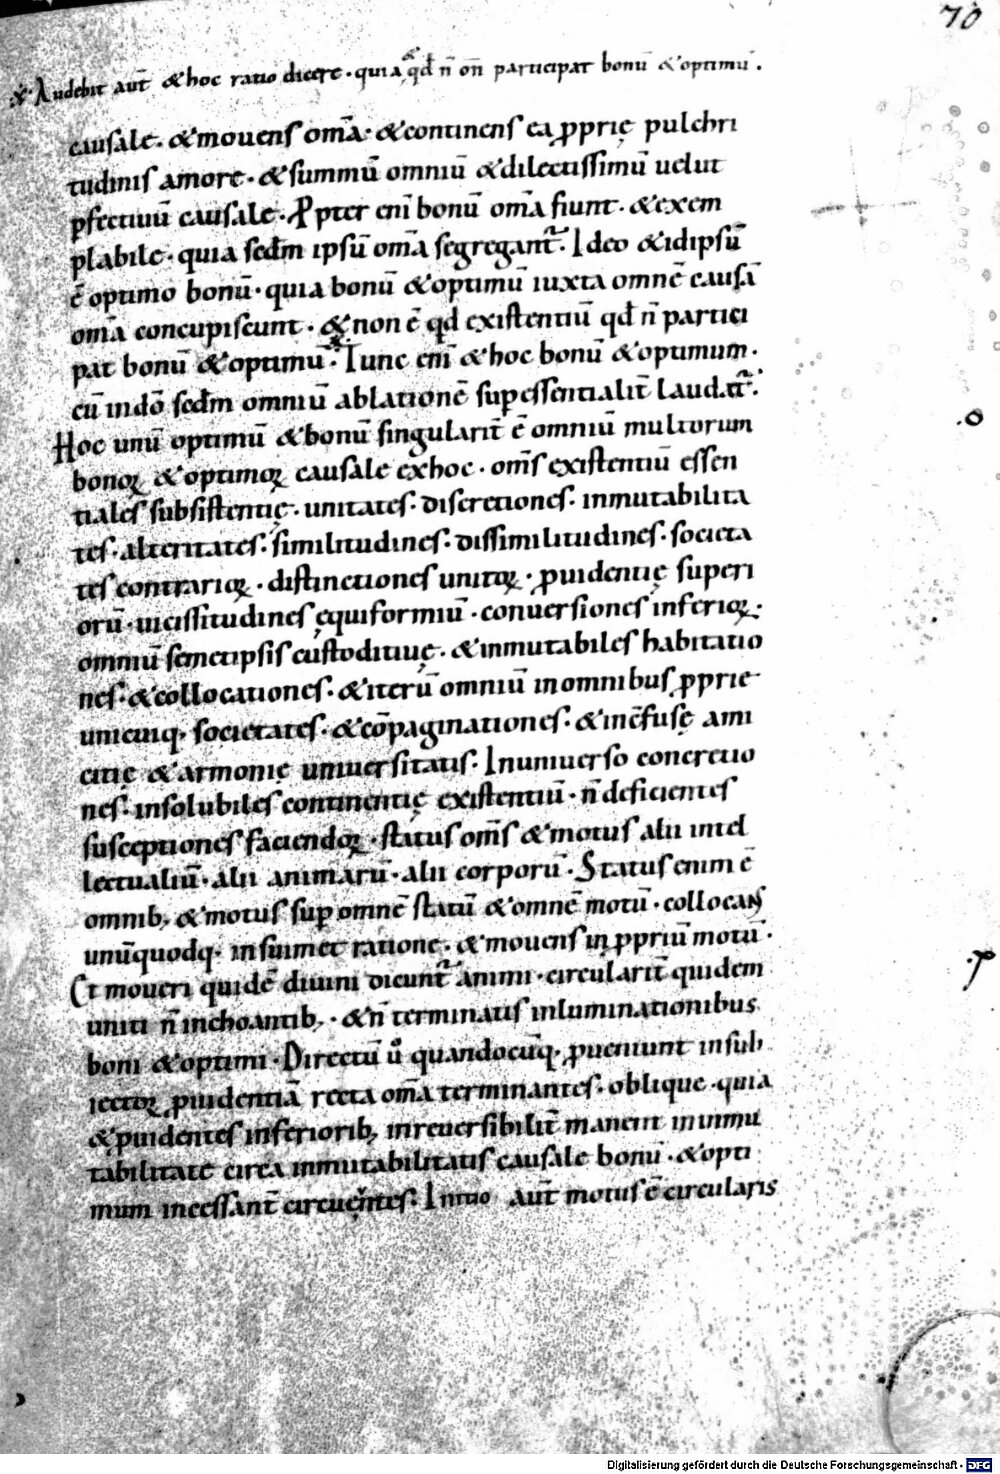 70
·Audebit aut̄ & hoc ratio dicere · quia & qd̄ n̄ on̄ participat bonū & optimū .
causale · & mouens om̄a · & continens ea ꝓprię pulchri
tudinis amore · & summū omniū & dilectissimū uelut
ꝑfectiuū causale · Ꝓpter eni bonū om̄a fiunt · & exem
plabile · quia sed̄m ipsū om̄a segregant̄ · Ideo & idipsū
ē optimo bonū · quia bonū & optimū iuxta omnē causā
om̄a concupiscunt · & non ē qd̄ existentiū qd̄ n̄ partici
pat bonū & optimū · Tunc eni & hoc bonū & optimum ·
cū in dō sed̄m omniū ablationē suꝑessentialit̄ laudat̄ ·
Hoc unū optimū & bonū singularit̄ ē omniū multorum
bonoꝝ & optimoꝝ causale ex hoc · om̄s existentiū essen
tiales subsistentię · unitates · discretiones · inmutabilita
tes · alteritates · similitudines · dissimilitudines · societa
tes contrarioꝝ · distinctiones unitoꝝ · ꝓuidentię superi
orū · uicissitudines ęquiformiū · conuersiones inferioꝝ ·
omniū semetipsis custoditiuę · & inmutabiles habitatio
nes · & collocationes · & iterū omniū in omnibus ꝓprie
unicuiq· societates · & cōpaginationes · & incf̄usę ami
citię & armonię uniuersitatis · In uniuerso concretio
nes · insolubiles continentię existentiū · n̄ deficientes
susceptiones faciendoꝝ · status om̄s & motus alii intel
lectualiū · alii animarū · alii corporū · Status enim ē
omnib; & motus suꝑ omnē statū & omnē motū · collocans
unūquodq· in suimet ratione · & mouens in ꝓpriū motū ·
Et moueri quidē diuini dicunt̄ animi · circularit̄ quidem
uniti n̄ inchoantib; · & n̄ terminatis inluminationibus
boni & optimi · Directū u̇ quandocūq· ꝓueniunt in sub
iectoꝝ ꝓuidentiā recta om̄a terminantes · oblique · quia
& ꝓuidentes inferiorib; inreuersibilit̄ manent in inmu
tabilitate circa inmutabilitatis causale bonū · & opti
mum incessant̄ circueūtes · Intuo aut̄ motus ē circularis
Digitalisierung gefördert durch die Deutsche Forschungsgemeinschaft - DFG